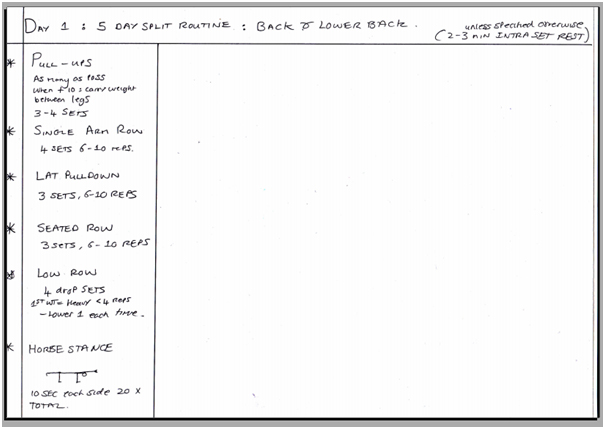 DAY 1 : 5 DAY SPLIT ROUTINE : BACK & LOWER BACK.
unless specified otherwise
(2-3 min INTRA SET REST)
* PULL-UPS
As many as poss
when + 10 : carry weight
between legs
3-4 SETS
* SINGLE ARM ROW
4 SETS 6-10 reps.
* LAT PULLDOWN
3 SETS, 6-10 REPS
* SEATED ROW
3 sets, 6-10 REPS
* LOW ROW
4 drop SETS
1ST WT = Heavy < 4 Reps
- Lower 1 each time.
* HORSE STANCE
10 SEC each side 20 x
TOTAL.